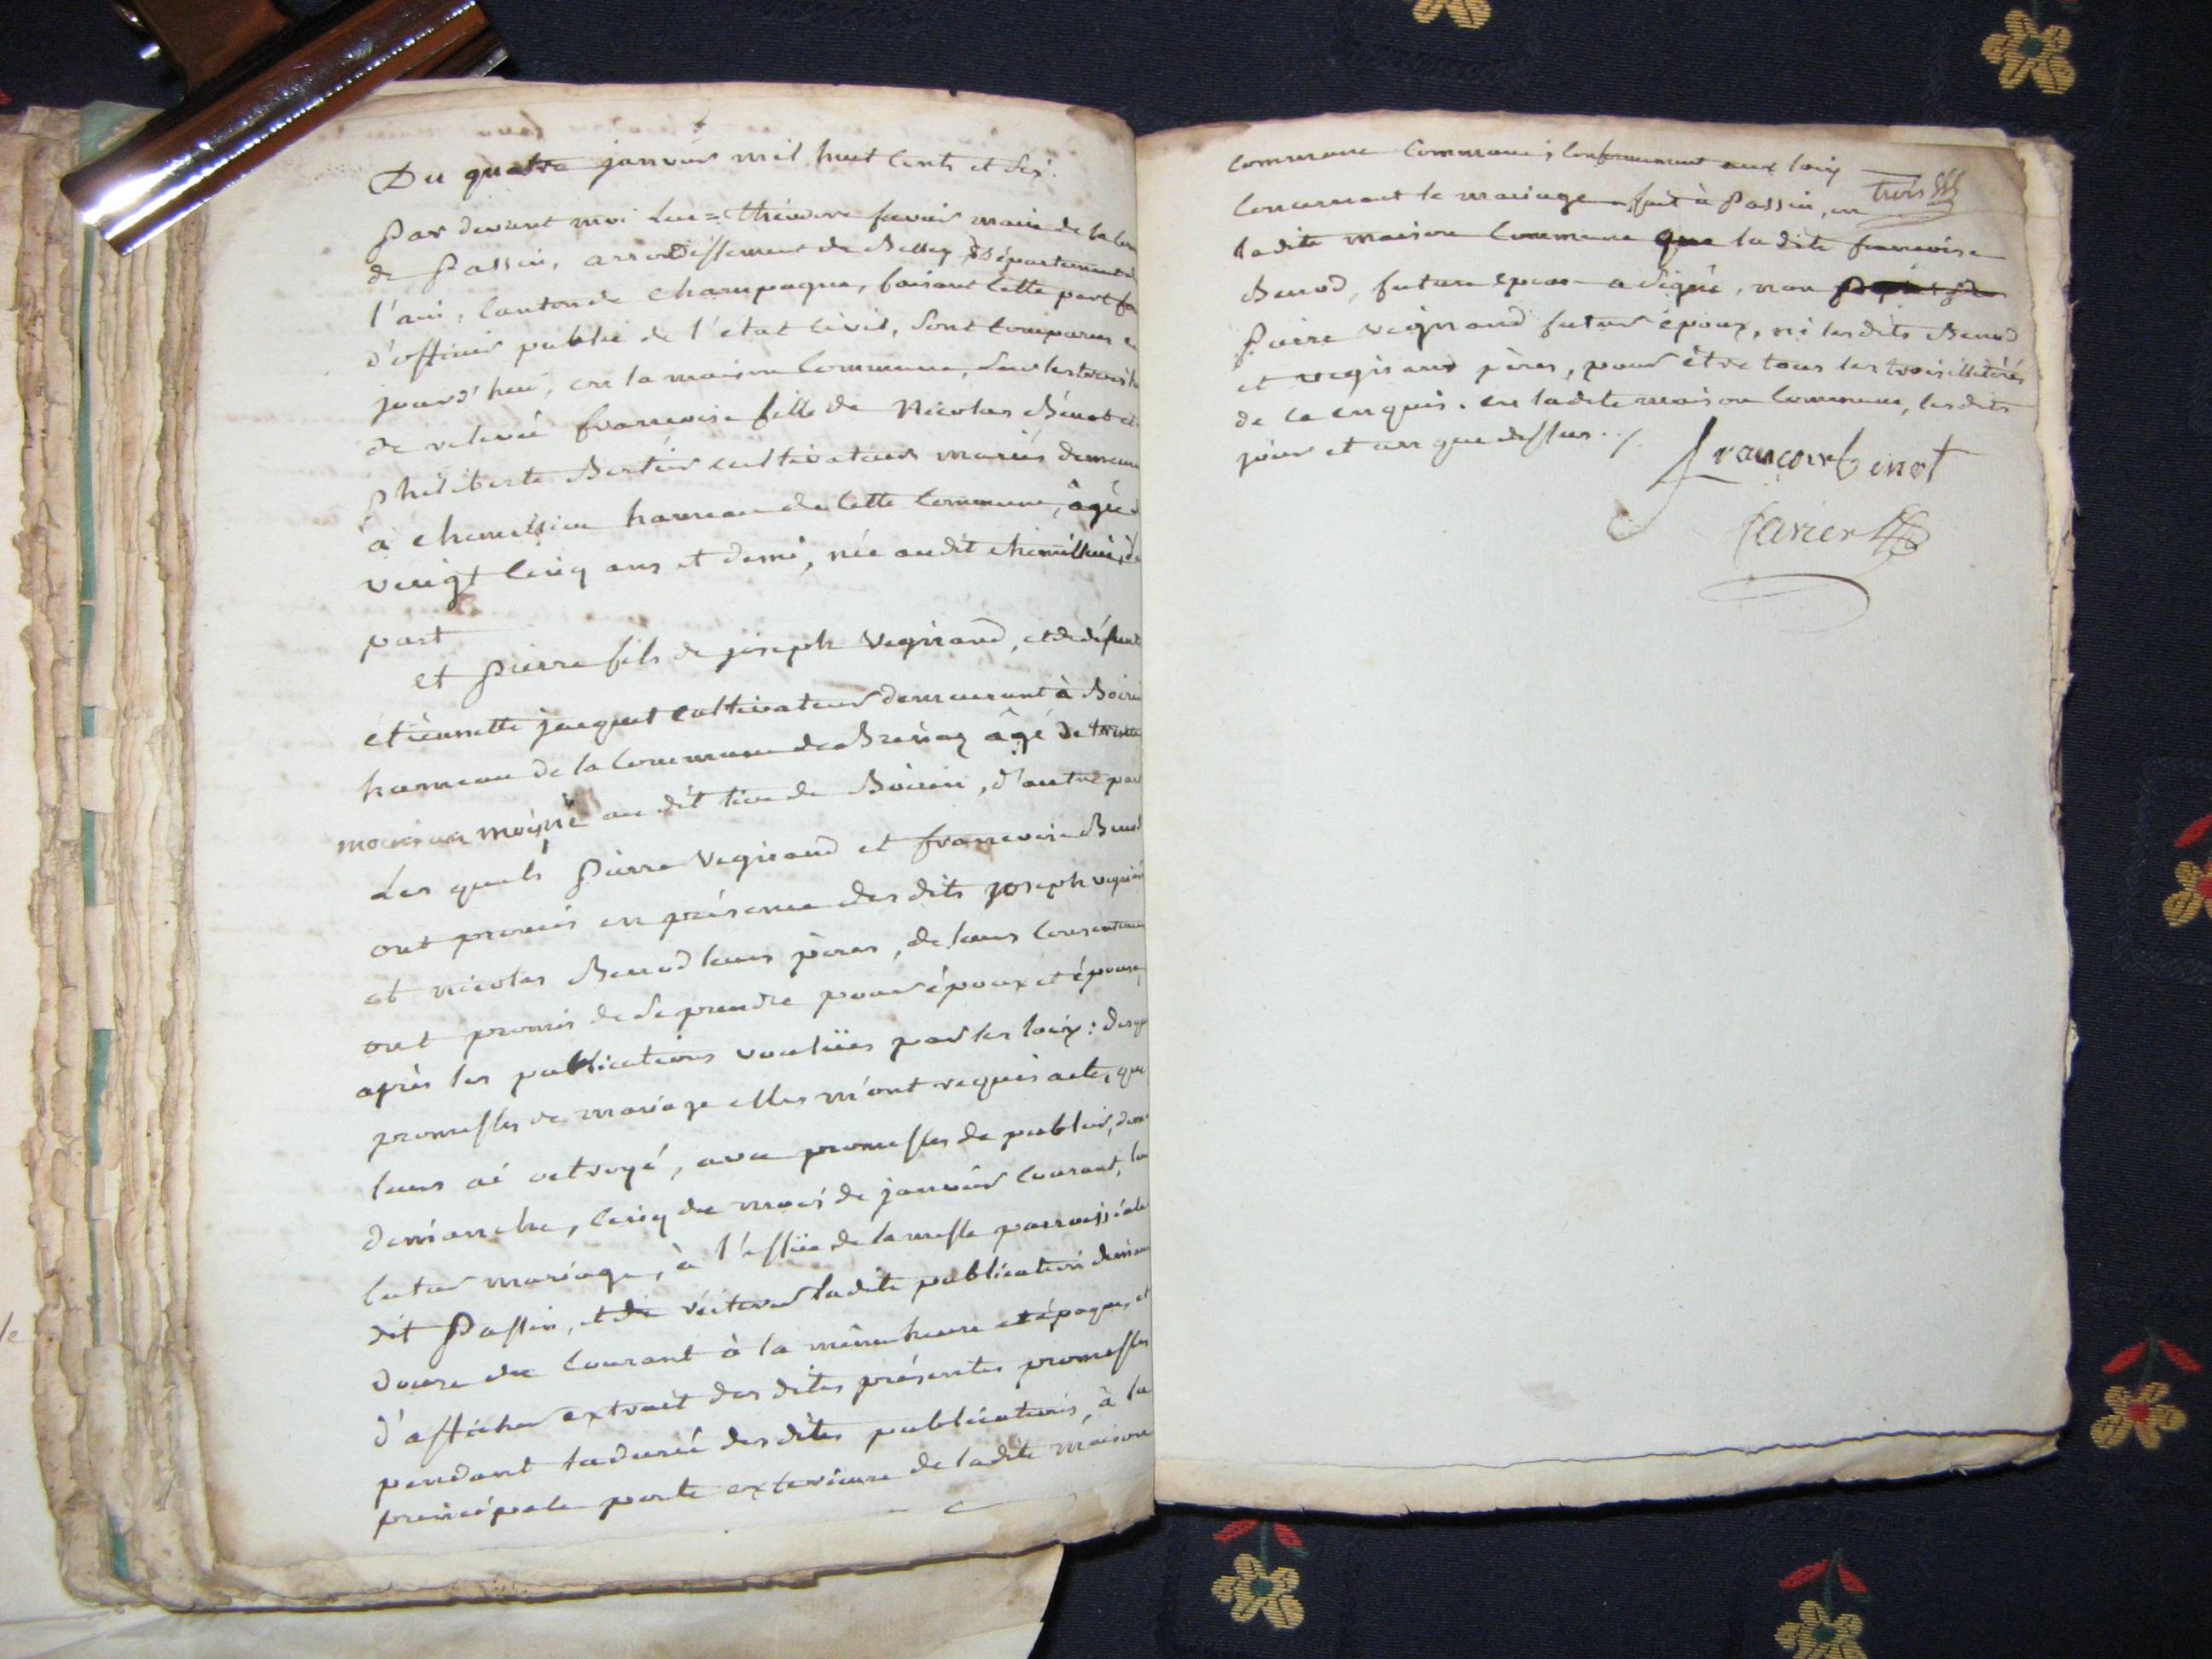 Du quatre janvier mil huit cents et six.
Par devant moi Luc=théodore favier maire de la com
de Passin, arrondissement de Belley Département de
l'ain, canton de champagne, faisant cette part fon
d'officier public de l'etat civil, sont comparus au
jourd'hui, en la maison commune, sur les trois h
de relevée francoise fille de Nicolas Bénod et
philiberte Bertier cultivateurs mariés demeur
à chemillieu hameau de cette commune, âgée d
veingt cinq ans et demi, née audit chemillieu, d'u
part
et pierre fils de joseph Vegnand, et de défunte
étiennette jacquet cultivateur demeurant à Boirin
hameau de la commune de Brénaz âgé de trente
moins un mois né au dit lieu de Boirin, d'autre par
Les quels pierre Vegnand et francoise Benod
ont promis en présence des dits joseph vegnand
et nicolas Benod leurs pères, de leurs consenteme
ont promis de se prendre pour époux et épouse,
après les publications voulües par les loix: desque
promesses de mariage elles m'ont requis acte, que
leurs ai octroyé, avec promesses de publier, dema
dimanche, cinq du mois de janvier courant, le
futur mariage, à l'issüe de la messe parroissiale
dit Passin, et de réiterer ladite publication diman
douze du courant à la même heure et époque, et
d'afficher extrait des dites présentes promesses
pendant ladurée desdites publications, à la
principale porte exterieure de ladite maison
commune commune; conformement aux loix
concernant le mariage fait à Passin, en
trois
ladite maison commune que ladite francoise
Benod, future epouse a signé, non
pierre vegnand futur époux, ni lesdits Benod
et vegnand pères, pour être tous les trois illitérés
de ce enquis. en ladite maison commune, lesdits
jour et an que dessus ./.
françoise benot
favier